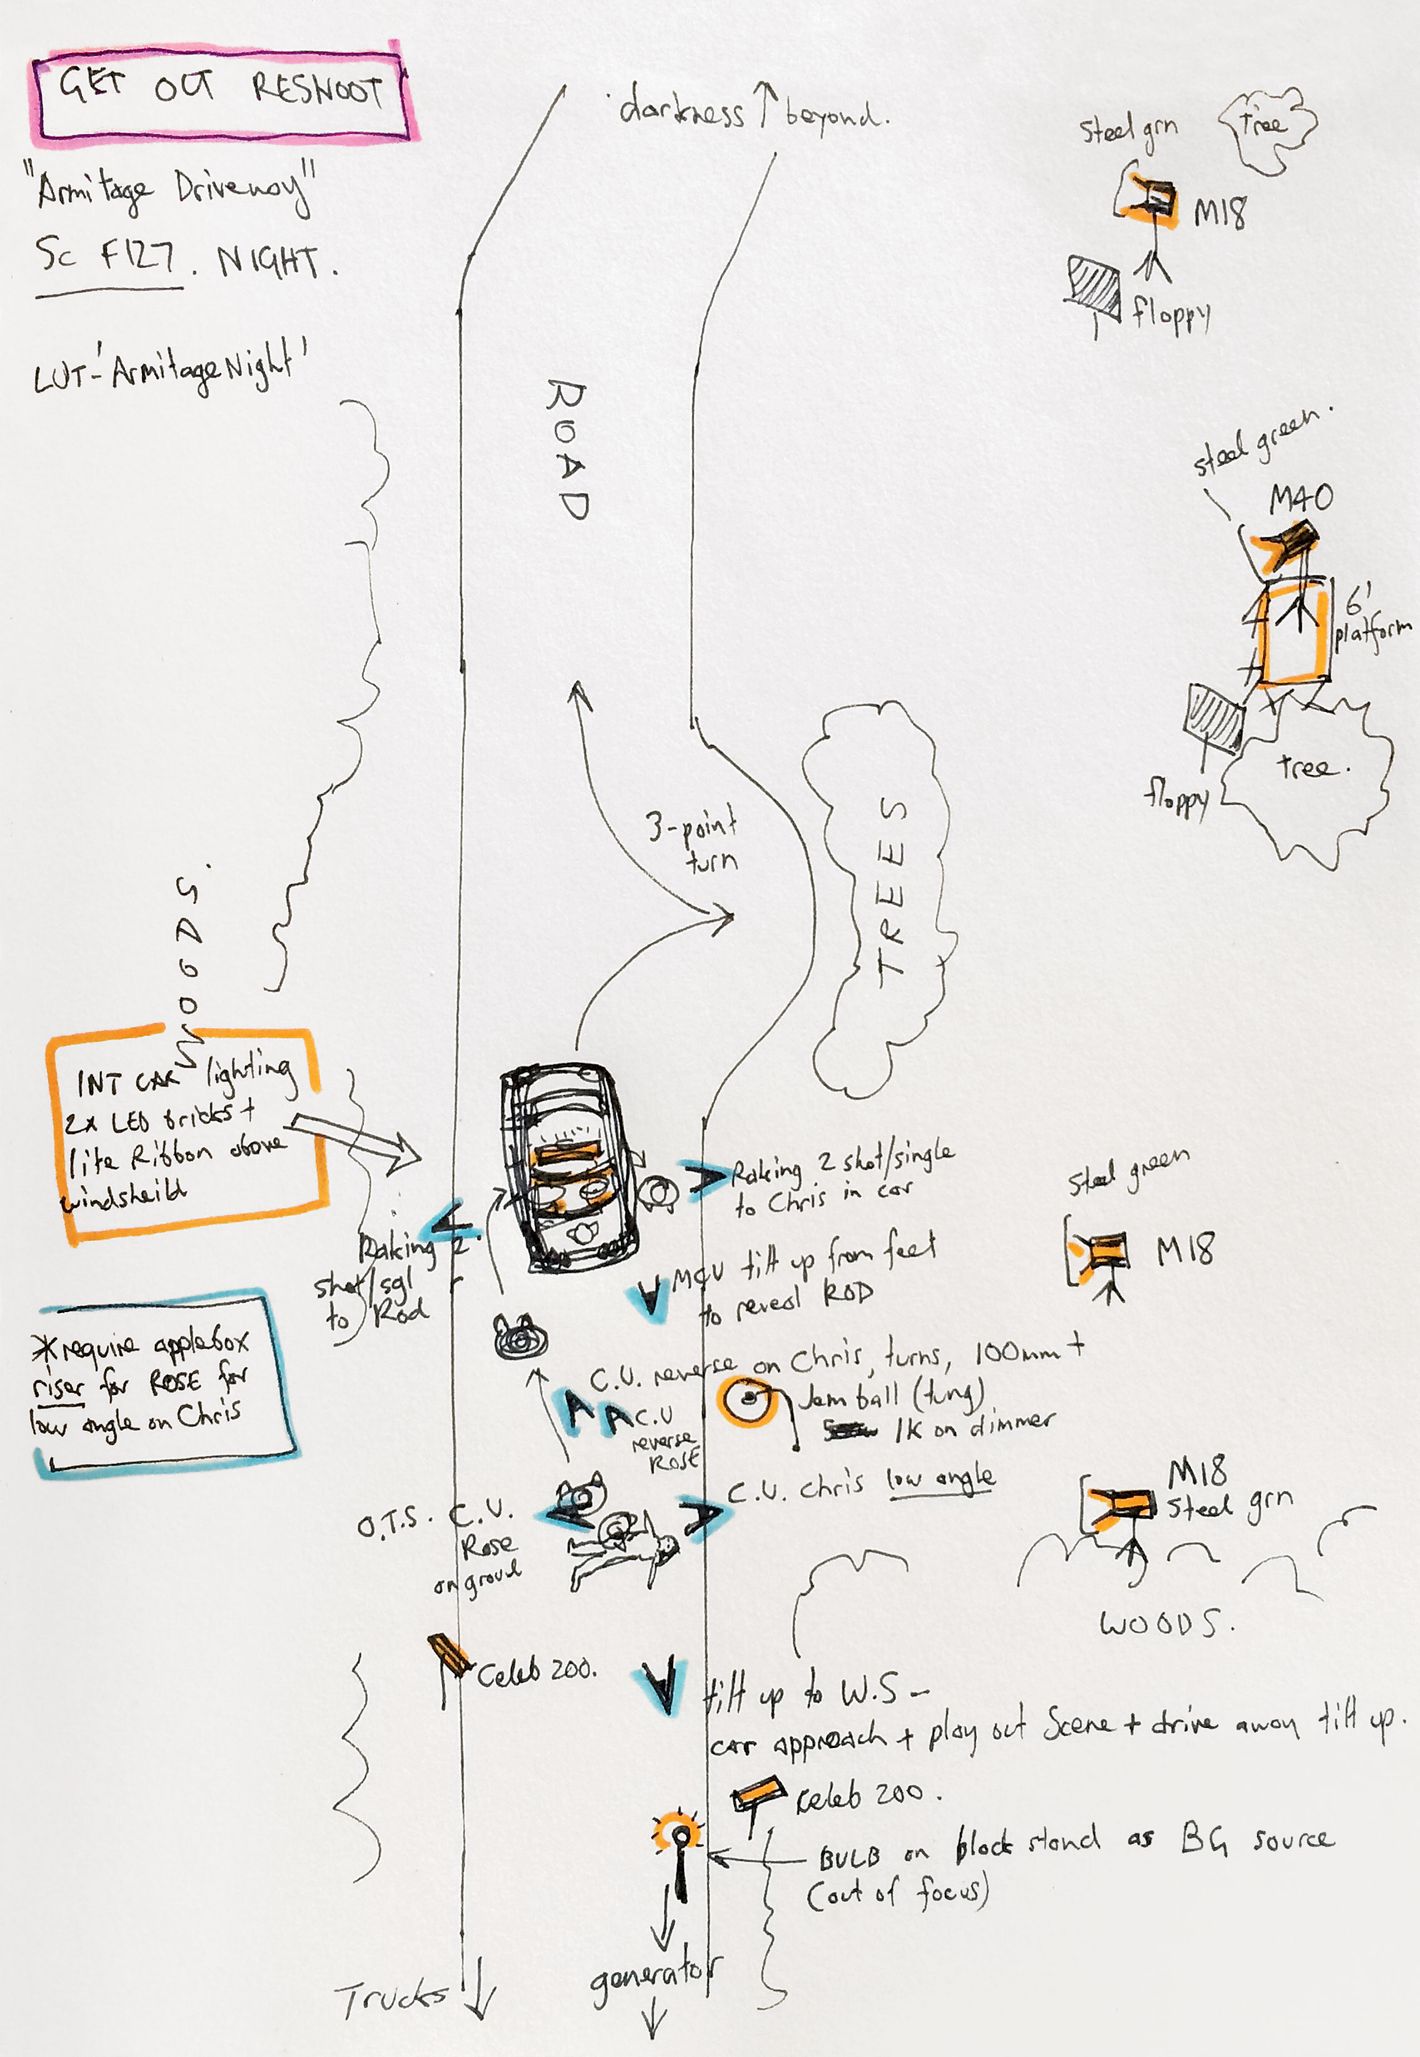 GET OUT RESHOOT
"Armitage Driveway"
Sc F127. NIGHT.
LUT-'ArmitageNight'
darkness beyond.
Steel grn
tree
M18
floppy
ROAD
steel green.
M40
6'
platform
floppy
tree.
3-point
turn
TREES
WOODS.
INT CAR lighting
2x LED bricks +
lite Ribbon above
windsheild
Raking 2 shot/single
to Chris in car
Steel green
M18
Raking 2
shot/sgl
to Rod
MCU tilt up from feet
to reveal ROD
*require applebox
riser for ROSE for
low angle on Chris
C.U. reverse on Chris, turns, 100mm +
C.U
reverse
ROSE
Jem ball (tung)
1K on dimmer
C.U. Chris low angle
M18
Steel grn
O.T.S. C.U.
Rose
on groud
WOODS.
Celeb 200.
tilt up to W.S -
car approach + play out Scene + drive away tilt up.
Celeb 200.
BULB on black stand as BG source
(out of focus)
generator
Trucks